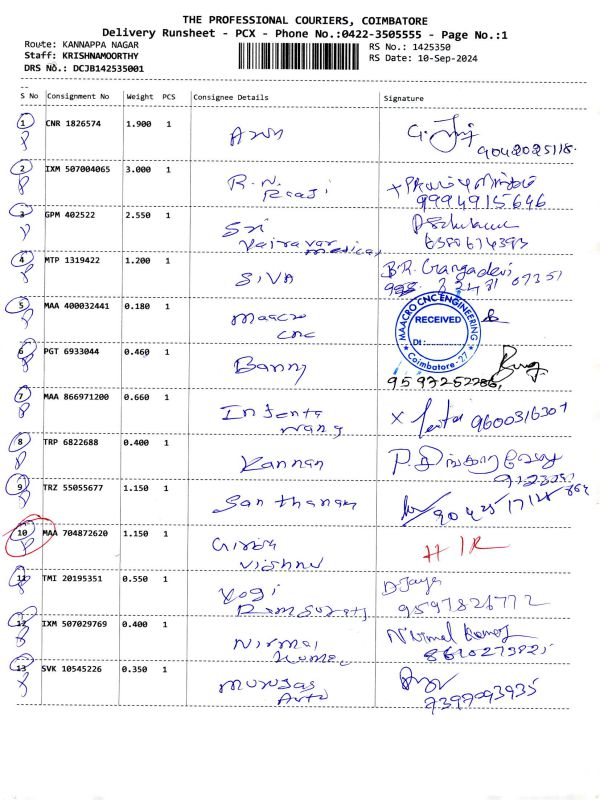 THE PROFESSIONAL COURIERS, COIMBATORE
Delivery Runsheet - PCX - Phone No.:0422-3505555 - Page No.:1
Route: KANNAPPA NAGAR
RS No.: 1425350
Staff: KRISHNAMOORTHY
RS Date: 10-Sep-2024
DRS No.: DCJB142535001
S No Consignment No Weight PCS Consignee Details Signature
1 CNR 1826574 1.900 1 Arun
9042025118.
2 IXM 507004065 3.000 1 R.N. Raaji
9994915646
3 GPM 402522 2.550 1 Sri Vairavar medical
6380614393
4 MTP 1319422 1.200 1 SIVA B.R. Gangadevi
07351
5 MAA 400032441 0.180 1 Maacro CNC
MAACRO CNC ENGINEERING
RECEIVED
Dt:
Coimbatore-27
6 PGT 6933044 0.460 1 Banny
9597252286
7 MAA 866971200 0.660 1 wang
9600316301
8 TRP 6822688 0.400 1 Kannan
9 TRZ 55055677 1.150 1 Santhanam
10 MAA 704872620 1.150 1 Girija Vishnu
11 TMI 20195351 0.550 1 Yogi Ramsuratj D Jaya
9597826772
12 IXM 507029769 0.400 1 Nirmal Kumar Nirmal Kumar
13 SVK 10545226 0.350 1 Murugas Auto
7397093935